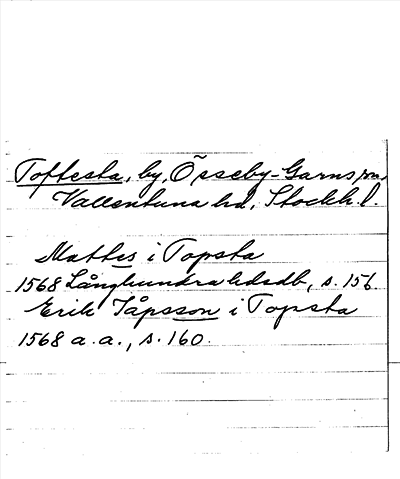 Toftesta, by, Össeby-Garns sn,
Vallentuna hd, Stockh. l.
Mattes i Topsta
1568 Långhundra hdsdb, s. 156
Erik Jåpsson i Topsta
1568 a.a., s. 160.